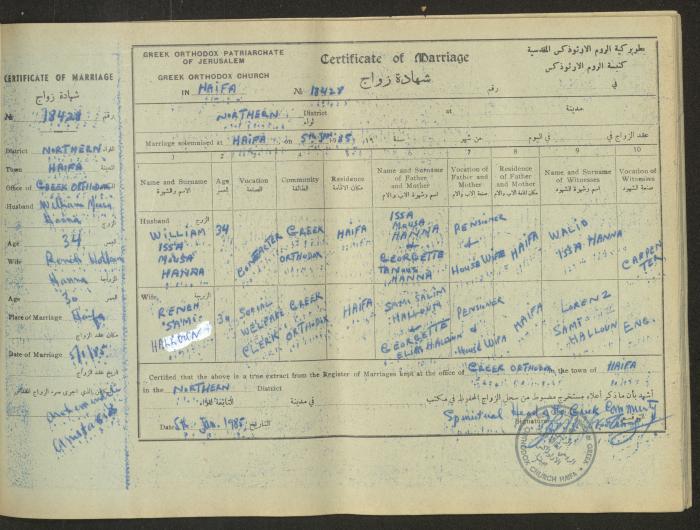 CERTIFICATE OF MARRIAGE
شهادة زواج
№ 18428 رقم
District NORTHERN
Town HAIFA
Office of GREEK ORTHODOX
Husband William Mousa
Hanna
Age
34
Wife
Reneh Halloun
Hanna
Age
30
Place of Marriage Haifa
مكان عقد الزواج
Date of Marriage 5/1/85
تاريخ عقد الزواج
GREEK ORTHODOX PATRIARCHATE
OF JERUSALEM
GREEK ORTHODOX CHURCH
IN HAIFA
Certificate of Marriage
شهادة زواج
№ 18428 رقم
بطريركية الروم الارثوذكس المقدسية
كنيسة الروم الارثوذكس
في
NORTHERN District at مدينة
لواء
Marriage solemnised at HAIFA on 5th Jan. 1985 سنة من شهر في اليوم عقد الزواج في
1 2 3 4 5 6 7 8 9 10
Name and Surname
الاسم والشهرة
Age
العمر
Vocation
الصناعة
Community
الطائفة
Residence
مكان الاقامة
Name and Surname
of Father
and Mother
اسم وشهرة الاب والام
Vocation of
Father and
Mother
صنعة الاب والام
Residence
of Father
and Mother
مكان اقامة الاب والام
Name and Surname
of Witnesses
اسم وشهرة الشهود
Vocation of
Witnesses
صنعة الشهود
Husband
الزوج
WILLIAM
ISSA
MOUSA
HANNA
34
GREEK
ORTHODOX
HAIFA
ISSA
MOUSA
HANNA
&
GEORGETTE
TANOUS
HANNA
PENSIONER
&
HOUSE WIFE
HAIFA
WALID
ISSA HANNA
CARPEN
TER.
Wife,
الزوجة
RENEH
SAMI
HALLOUN
30
SOCIAL
WELFARE
CLERK
GREEK
ORTHODOX
HAIFA
SAMI SALIM
HALLOUN
&
GEORGETTE
ELIAS HALLOUN
PENSIONER
&
HOUSE WIFE
HAIFA
LORENZ
SAMI
HALLOUN
ENG.
Certified that the above is a true extract from the Register of Marriages kept at the office of GREEK ORTHODOX, in the town of HAIFA
in the NORTHERN District
في مدينة
أشهد بأن ما ذكر أعلاه مستخرج مضبوط من سجل الزواج المحفوظ في مكتب
Spiritual Head of the Greek Community
Date 5th Jan. 1985 التاريخ
Signature
ORTHODOX CHURCH HAIFA